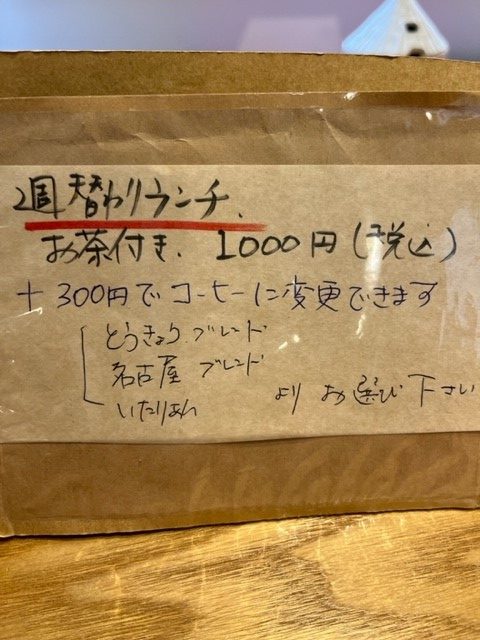 週替わりランチ.
お茶付き. 1000円(税込)
+300円でコーヒーに変更できます
とうきょうブレンド
名古屋 ブレンド
いたりあん よりお選び下さい